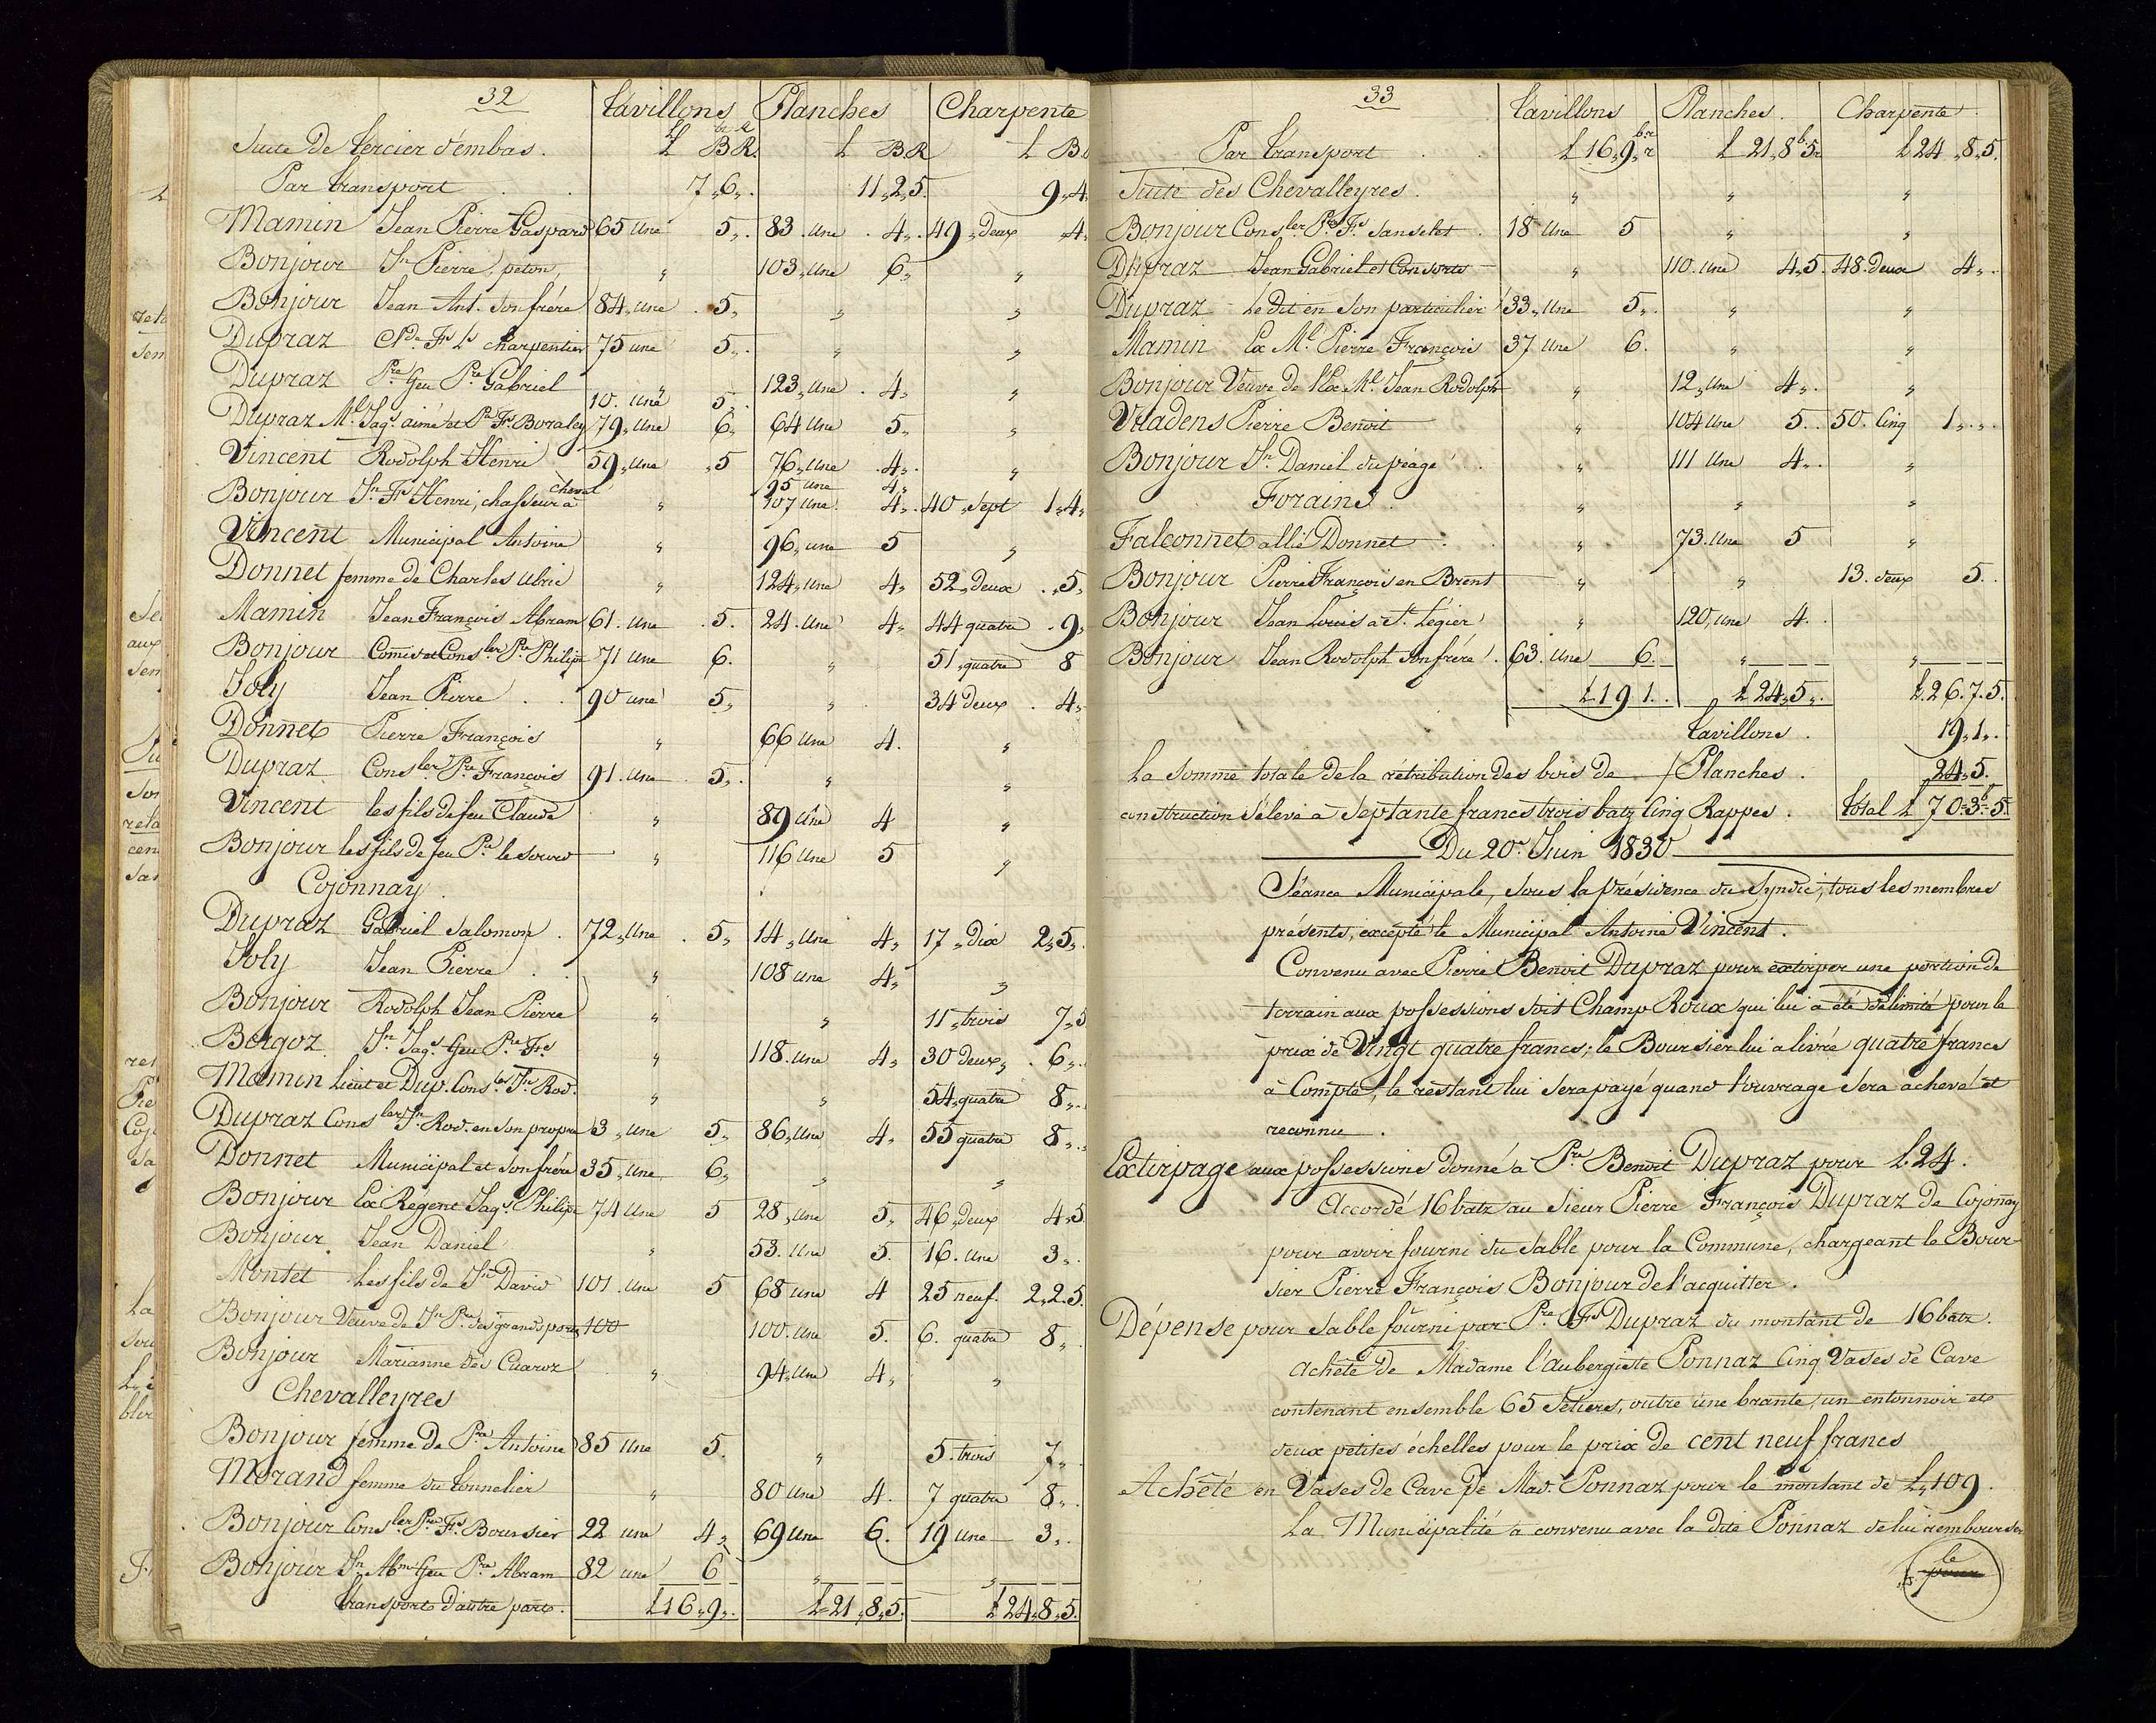 32
Tavillons Planches Charpente
Suite de Tercier d'embas. L BR. L BR L B.
Par transport 7„6„. 11„2„5. 9„4.
Mamin Jean Pierre Gaspard 65 une 5„. 83. une 4„. 49„deux „4„
Bonjour Jn Pierre, peton, „ 103„une 6„ „
Bonjour Jean Ant. son frére 84„une 5„ „ „
Dupraz Cde Fs Ls charpentier 75 une 5„. „ „
Dupraz Pre feu Pre Gabriel 10. une 5„. 123„une 4„ „
Dupraz Ml. Jaqs aimé et Pre Fs Boraley 79„une 6„ 64 une 5„ „
Vincent Rodolph Henri 59„une „5 76„une 4„. „
95 une 4„
Bonjour Jn Fs Henri, chasseur à cheval „ 107 une 4„. 40„sept 1„4„
Vincent Municipal Antoine „ 96„une 5 „
Donnet femme de Charles Ulric „ 124„une 4„ 52„deux „5„
Mamin Jean François Abram 61. une 5. 24. une 4„ 44 quatre 9„
Bonjour Comis et Consler Pre Philipe 71 une 6. „ 51„quatre 8
Joly Jean Pierre 90 une 5„ „ 34 deux 4„
Donnet Pierre François „ 66 une 4. „
Dupraz Consler Pre François 91. une 5„. „ „
Vincent les fils de feu Claude „ 89 une 4 „
Bonjour les fils de feu Pre le sourd „ 116 une 5 „
Cojonnay
Dupraz Gabriel Salomon 72„une 5„ 14„une 4„ 17„dix 2„5„.
Joly Jean Pierre „ 108 une 4„ „
Bonjour Rodolph Jean Pierre „ „ 11„trois 7„5
Bergoz Jn Jaqs feu Pre Fs „ 118. une 4„ 30 deux„ 6„.
Mamin Lieut et Dup. Consler Jn Rod. „ „ 54„quatre 8„.
Dupraz Consler Jn Rod. en son propre 3„une 5„ 86„une 4„ 55 quatre 8„.
Donnet Municipal et son frére 35„une 6„ „ „
Bonjour Ex Régent Jaqs Philipe 74 une 5 28„une 5„ 46„deux 4„5
Bonjour Jean Daniel „ 53. une 5. 16. une 3„.
Montet Les fils de Jn David 101. une 5 68 une 4 25 neuf. 2„2„5.
Bonjour Veuve de Jn Pre des grands ports 100 100. une 5. 6. quatre 8„.
Bonjour Marianne des Cuaroz „ 94„une 4„ „
Chevalleyres
Bonjour femme de Pre Antoine 85 une 5. „ 5. trois 7„
Morand femme du tonnelier „ 80 une 4. 7 quatre 8„.
Bonjour Consler Pre Fs Boursier 22 une 4„ 69 une 6. 19 une 3„.
Bonjour Jn Abm feu Pre Abram 82 une 6 „ „
transporté d'autre part. L16„9„. L21„8„5. L24„8„5.
33
Tavillons Planches. Charpente
Par transport L16„9„ L21„8„5 L24„8„5.
Suite des Chevalleyres. „ „ „
Bonjour Consler Pre Fs Sanselet 18 une 5 „ „
Dupraz Jean Gabriel et Consorts „ 110. une 4„5. 48. deux 4„.
Dupraz Le dit en son particulier 33„une 5„. „ „
Mamin Ex Ml. Pierre François 37 une 6. „ „
Bonjour Veuve de l'Ex Ml. Jean Rodolph „ 12„une 4„. „
Vuadens Pierre Benoit „ 104 une 5. 50. Cinq 1„.„.
Bonjour Jn Daniel du péage „ 111 une 4„. „
Forains „ „ „
Falconnet allié Donnet „ 73. une 5 „
Bonjour Pierre François en Brent „ „ 13. deux 5.
Bonjour Jean Louis à St. Légier „ 120„une 4.
Bonjour Jean Rodolph son frére 63. une 6. „ „
L191.. L24„5„. L.26.7.5.
Tavillons. 19„1„.
La somme totale de la rétribution des bois de Planches. 24„5.
construction s'élève à Septante francs trois batz Cinq Rappes. Total L 70„3b„5.
Du 20e Juin 1830
Séance Municipale, sous la présidence du Syndic, tous les membres
présents, excepté le Municipal Antoine Vincent.
Convenu avec Pierre Benoit Dupraz pour extirper une portion de
terrain aux possessions soit Champ Roux qui lui a été délimité pour le
prix de Vingt quatre francs; le Boursier lui a livré quatre francs
à Compte, le restant lui sera payé quand l'ouvrage sera achevé et
reconnu.
Extirpage aux possessions donné à Pre Benoit Dupraz pour L.24.
Accordé 16 batz au Sieur Pierre François Dupraz de Cojonay
pour avoir fourni du sable pour la Commune, chargeant le Bour-
sier Pierre François Bonjour de l'acquitter.
Dépense pour sable fourni par Pre Fs Dupraz du montant de 16 batz.
Achété de Madame l'aubergiste Ponnaz Cinq Vases de Cave
contenant ensemble 65 Sétiers, outre une brante, un entonnoir et
deux petites échelles pour le prix de cent neuf francs
Achété en Vases de Cave de Mad. Ponnaz pour le montant de L„109.
La Municipalité a convenu avec la dite Ponnaz de lui rembourser
le
pour